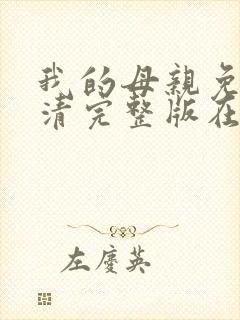 我的母親免
清完整版在
左慶英